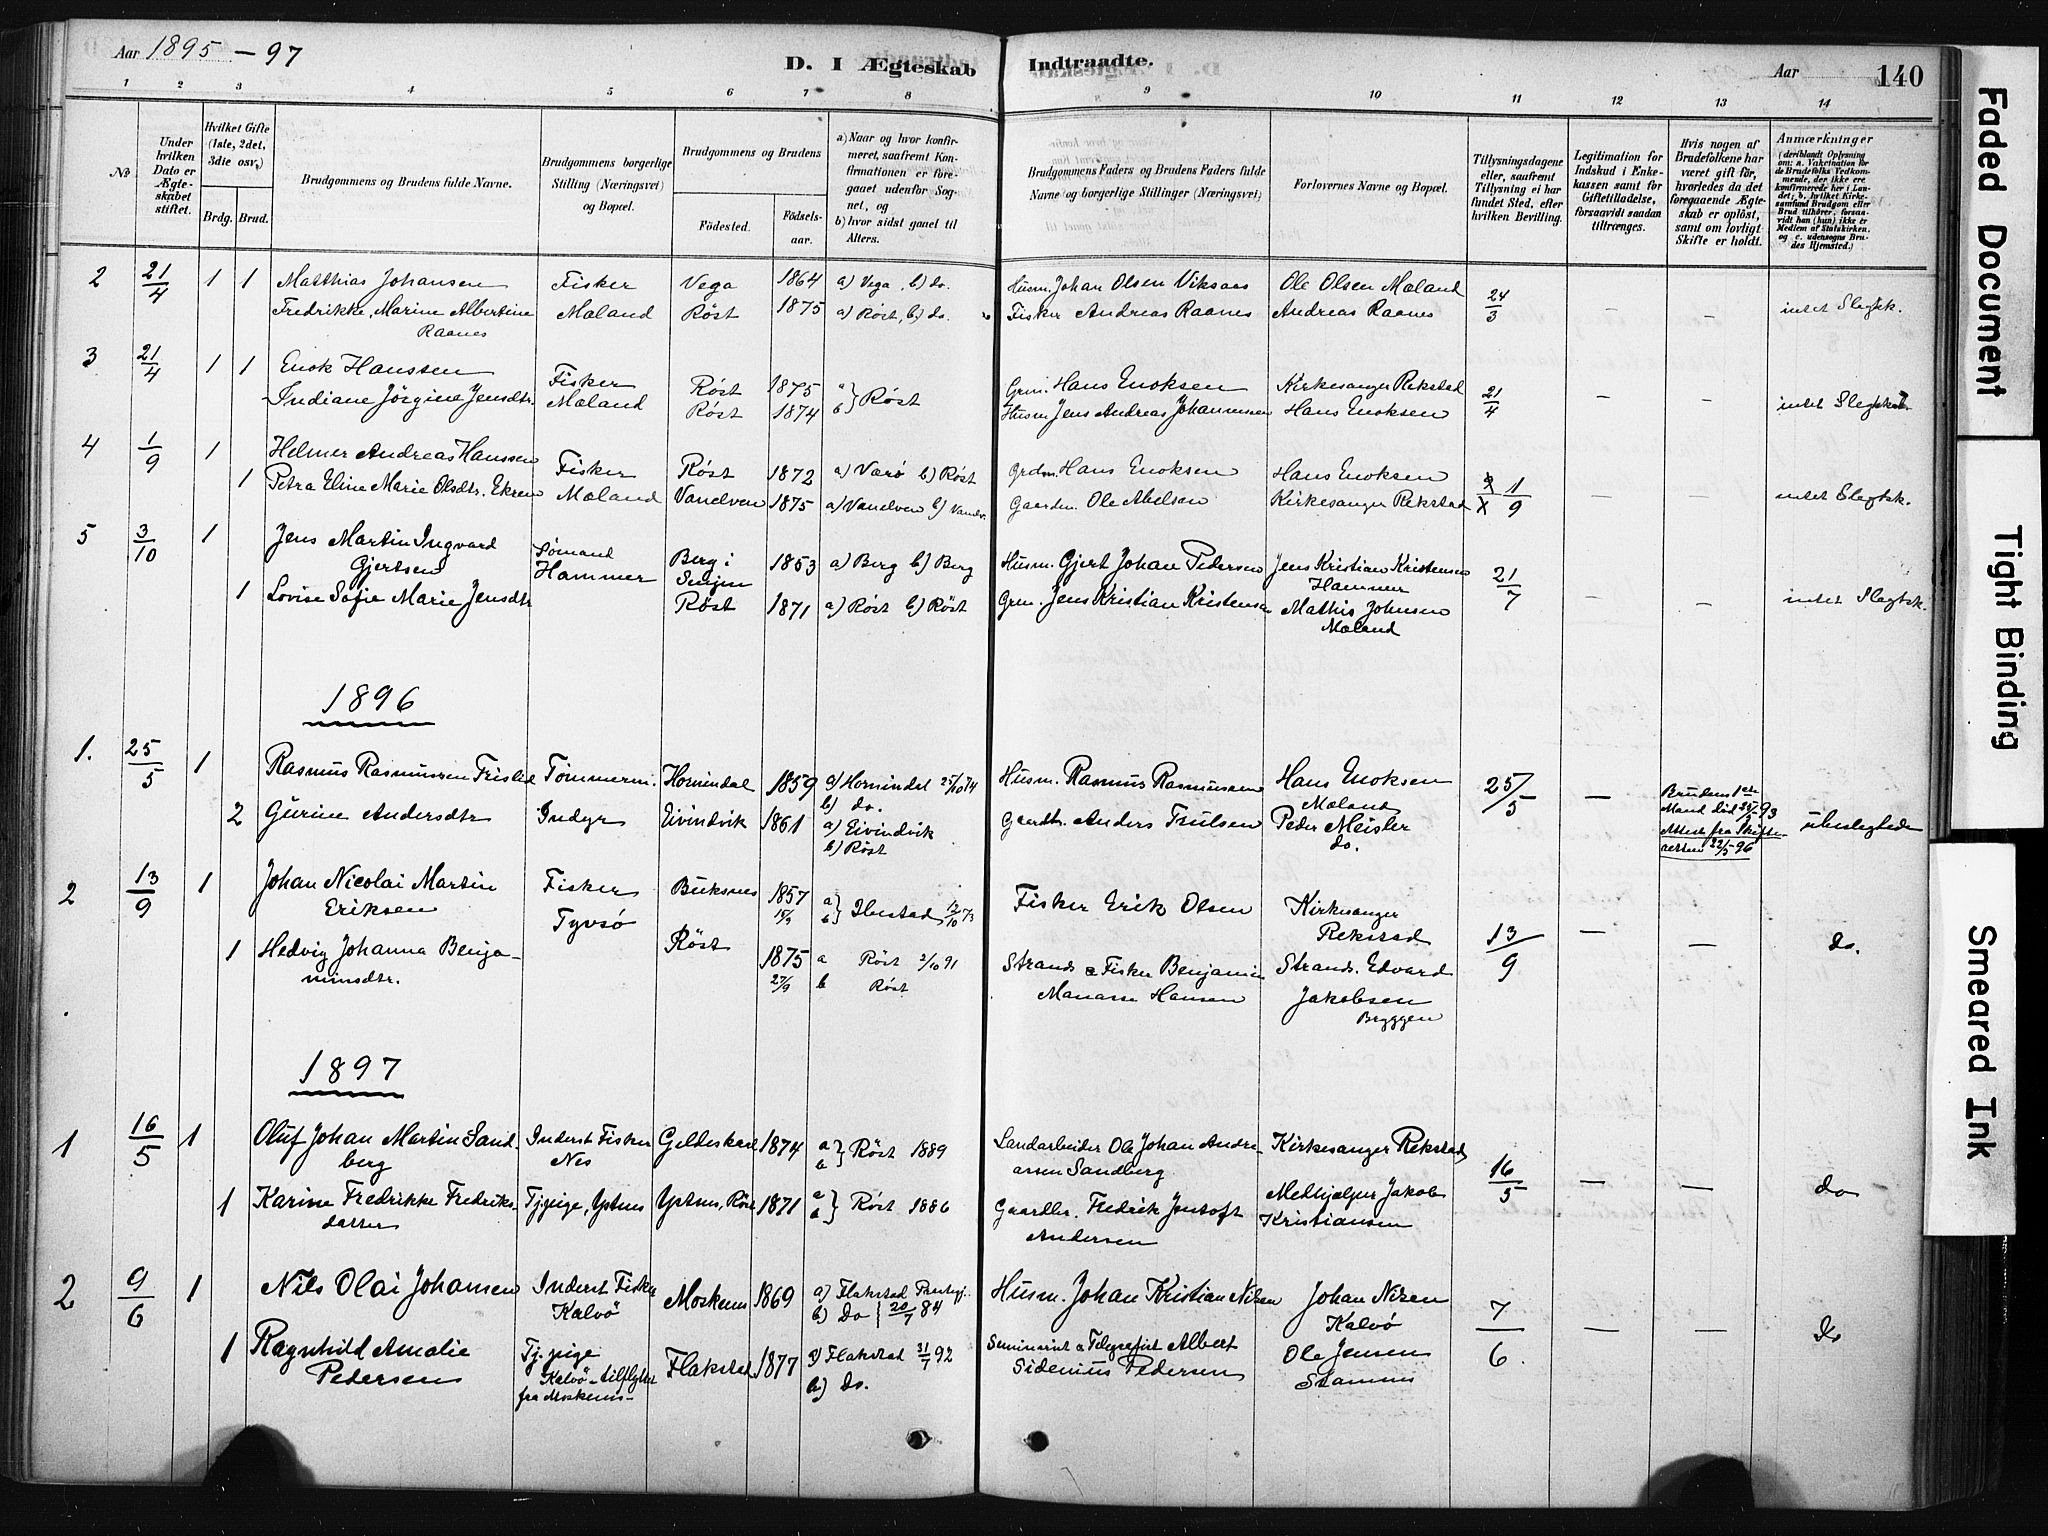 Aar 1895 – 97
D. I Ægteskab Indtraadte.
Aar
140
1 2 3 4 5 6 7 8 9 10 11 12 13 14
№
Under hvilken Dato er Ægteskabet stiftet.
Hvilket Gifte (1ste, 2det, 3die osv.)
Brdg. Brud.
Brudgommens og Brudens fulde Navne.
Brudgommens borgerlige Stilling (Næringsvei) og Bopæl.
Brudgommens og Brudens
Fødested. Fødselsaar.
a) Naar og hvor konfirmeret, saafremt Konfirmationen er foregaaet udenfor Sognet, og
b) hvor sidst gaaet til Alters.
Brudgommens Faders og Brudens Faders fulde Navne og borgerlige Stillinger (Næringsvei)
Forlovernes Navne og Bopæl.
Tillysningsdagene eller, saafremt Tillysning ei har fundet Sted, efter hvilken Bevilling.
Legitimation for Indskud i Enkekassen samt for Giftetilladelse, forsaavidt saadan tiltrænges.
Hvis nogen af Brudefolkene har været gift før, hvorledes da det foregaaende Ægteskab er opløst, samt om lovligt Skifte er holdt.
Anmærkninger
(deriblandt Oplysning om: a. Vakcination for de Brudefolks Vedkommende, der ikke ere konfirmerede her i Landet; b. hvilket Kirkesamfund Brudgom eller Brud tilhører, forsaavidt han (hun) ikke er Medlem af Statskirken, og c. udensogns Brudes Hjemsted.)
2 21/4 1 1 Matthias Johansen Fisker Vega 1864 a) Vega, b) do. Husm. Johan Olsen Viksaas Ole Olsen Maland 24/3 – – intet Slegtsk.
Fredrikke, Marine Albertine Maland Røst 1875 a) Røst, b) do. Fisker Andreas Raanes Andreas Raanes
Raanes
3 21/4 1 1 Enok Hanssen Fisker Røst 1875 a) b) Røst Grm. Hans Enoksen Kirkesanger Rekstad 21/4 – – intet Slegtsk.
Indiane Jørgine Jensdtr. Maland Røst 1874 Husm. Jens Andreas Johannesen Hans Enoksen
4 1/9 1 Helmer Andreas Hanssen Fisker Røst 1872 a) Værø b) Røst Grdm. Hans Enoksen Hans Enoksen 1/9 – – intet Slegtsk.
1 Petra Eline Marie Olsdtr. Ekren Maland Vanelven 1875 a) Vanelven b) Vanelv. Gaardm. Ole Abelsen Kirkesanger Rekstad
5 3/10 1 Jens Martin Ingvard Sømand Berg i 1853 a) Berg b) Berg Husm. Gjert Johan Pedersen Jens Kristian Kristensen 21/7 – – intet Slegtsk.
Gjertsen Hammer Senjen Hammer
1 Lovise Sofie Marie Jensdtr Røst 1871 a) Røst b) Røst Grm. Jens Kristian Kristensen Mathis Johnsen
Maland
1896
1. 25/5 1 Rasmus Rasmussen Frislid Tømmerm. Hornindal 1859 a) Hornindal 25/10 74 Husm. Rasmus Rasmussen Hans Enoksen 25/5 – Brudens 1ste
b) do. Maland Mand død 25/5 93
2 Gurine Andersdtr Indyr Eivindvik 1861 a) Eivindvik Gaardtr. Anders Trulsen Peder Meisler Attest fra Skifteretten 22/5 96 ubeslegtede
b) Røst do.
2 13/9 1 Johan Nicolai Martin Fisker Buksnes 1857 a b Ibestad 12/10 73 Fisker Erik Olsen Kirkesanger 13/9 – – do.
Eriksen Tyvsø 15/3 Rekstad
1 Hedvig Johanna Benja- Røst 1875 a Røst 2/10 91 Strands. & Fisker Benjamin Strands. Edvard
minsdtr. 27/9 b Røst Manasse Hansen Jakobsen
Bryggen
1897
1 16/5 1 Oluf Johan Martin Sand- Inderst Fisker Gildeskaal 1874 a b Røst 1889 Landarbeider Ole Johan Andre- Kirkesanger Rekstad 16/5 – – do
berg Nes assen Sandberg
1 Karine Fredrikke Fredriks- Tj.pige, Ystnes Ystnes, Røst 1871 a b Røst 1886 Gaardbr. Fredrik Jentoft Medhjælper Jakob
datter Andersen Kristiansen
2 9/6 1 Nils Olai Johansen Inderst Fisker Moskenes 1869 a) Flakstad Prestegj. Husm. Johan Kristian Nilsen Johan Nilsen 7/6 – – do
Kalvø b) Do 20/7 84 Kalvø
1 Ragnhild Amalie Tj.pige Flakstad 1877 a) Flakstad 31/7 92 Seminarist & Telegrafist Albert Ole Jensen
Pedersen Kalvø – tilflyttet b) do. Sidenius Pedersen Stamnes
fra Moskenes –
Faded Document
Tight Binding
Smeared Ink